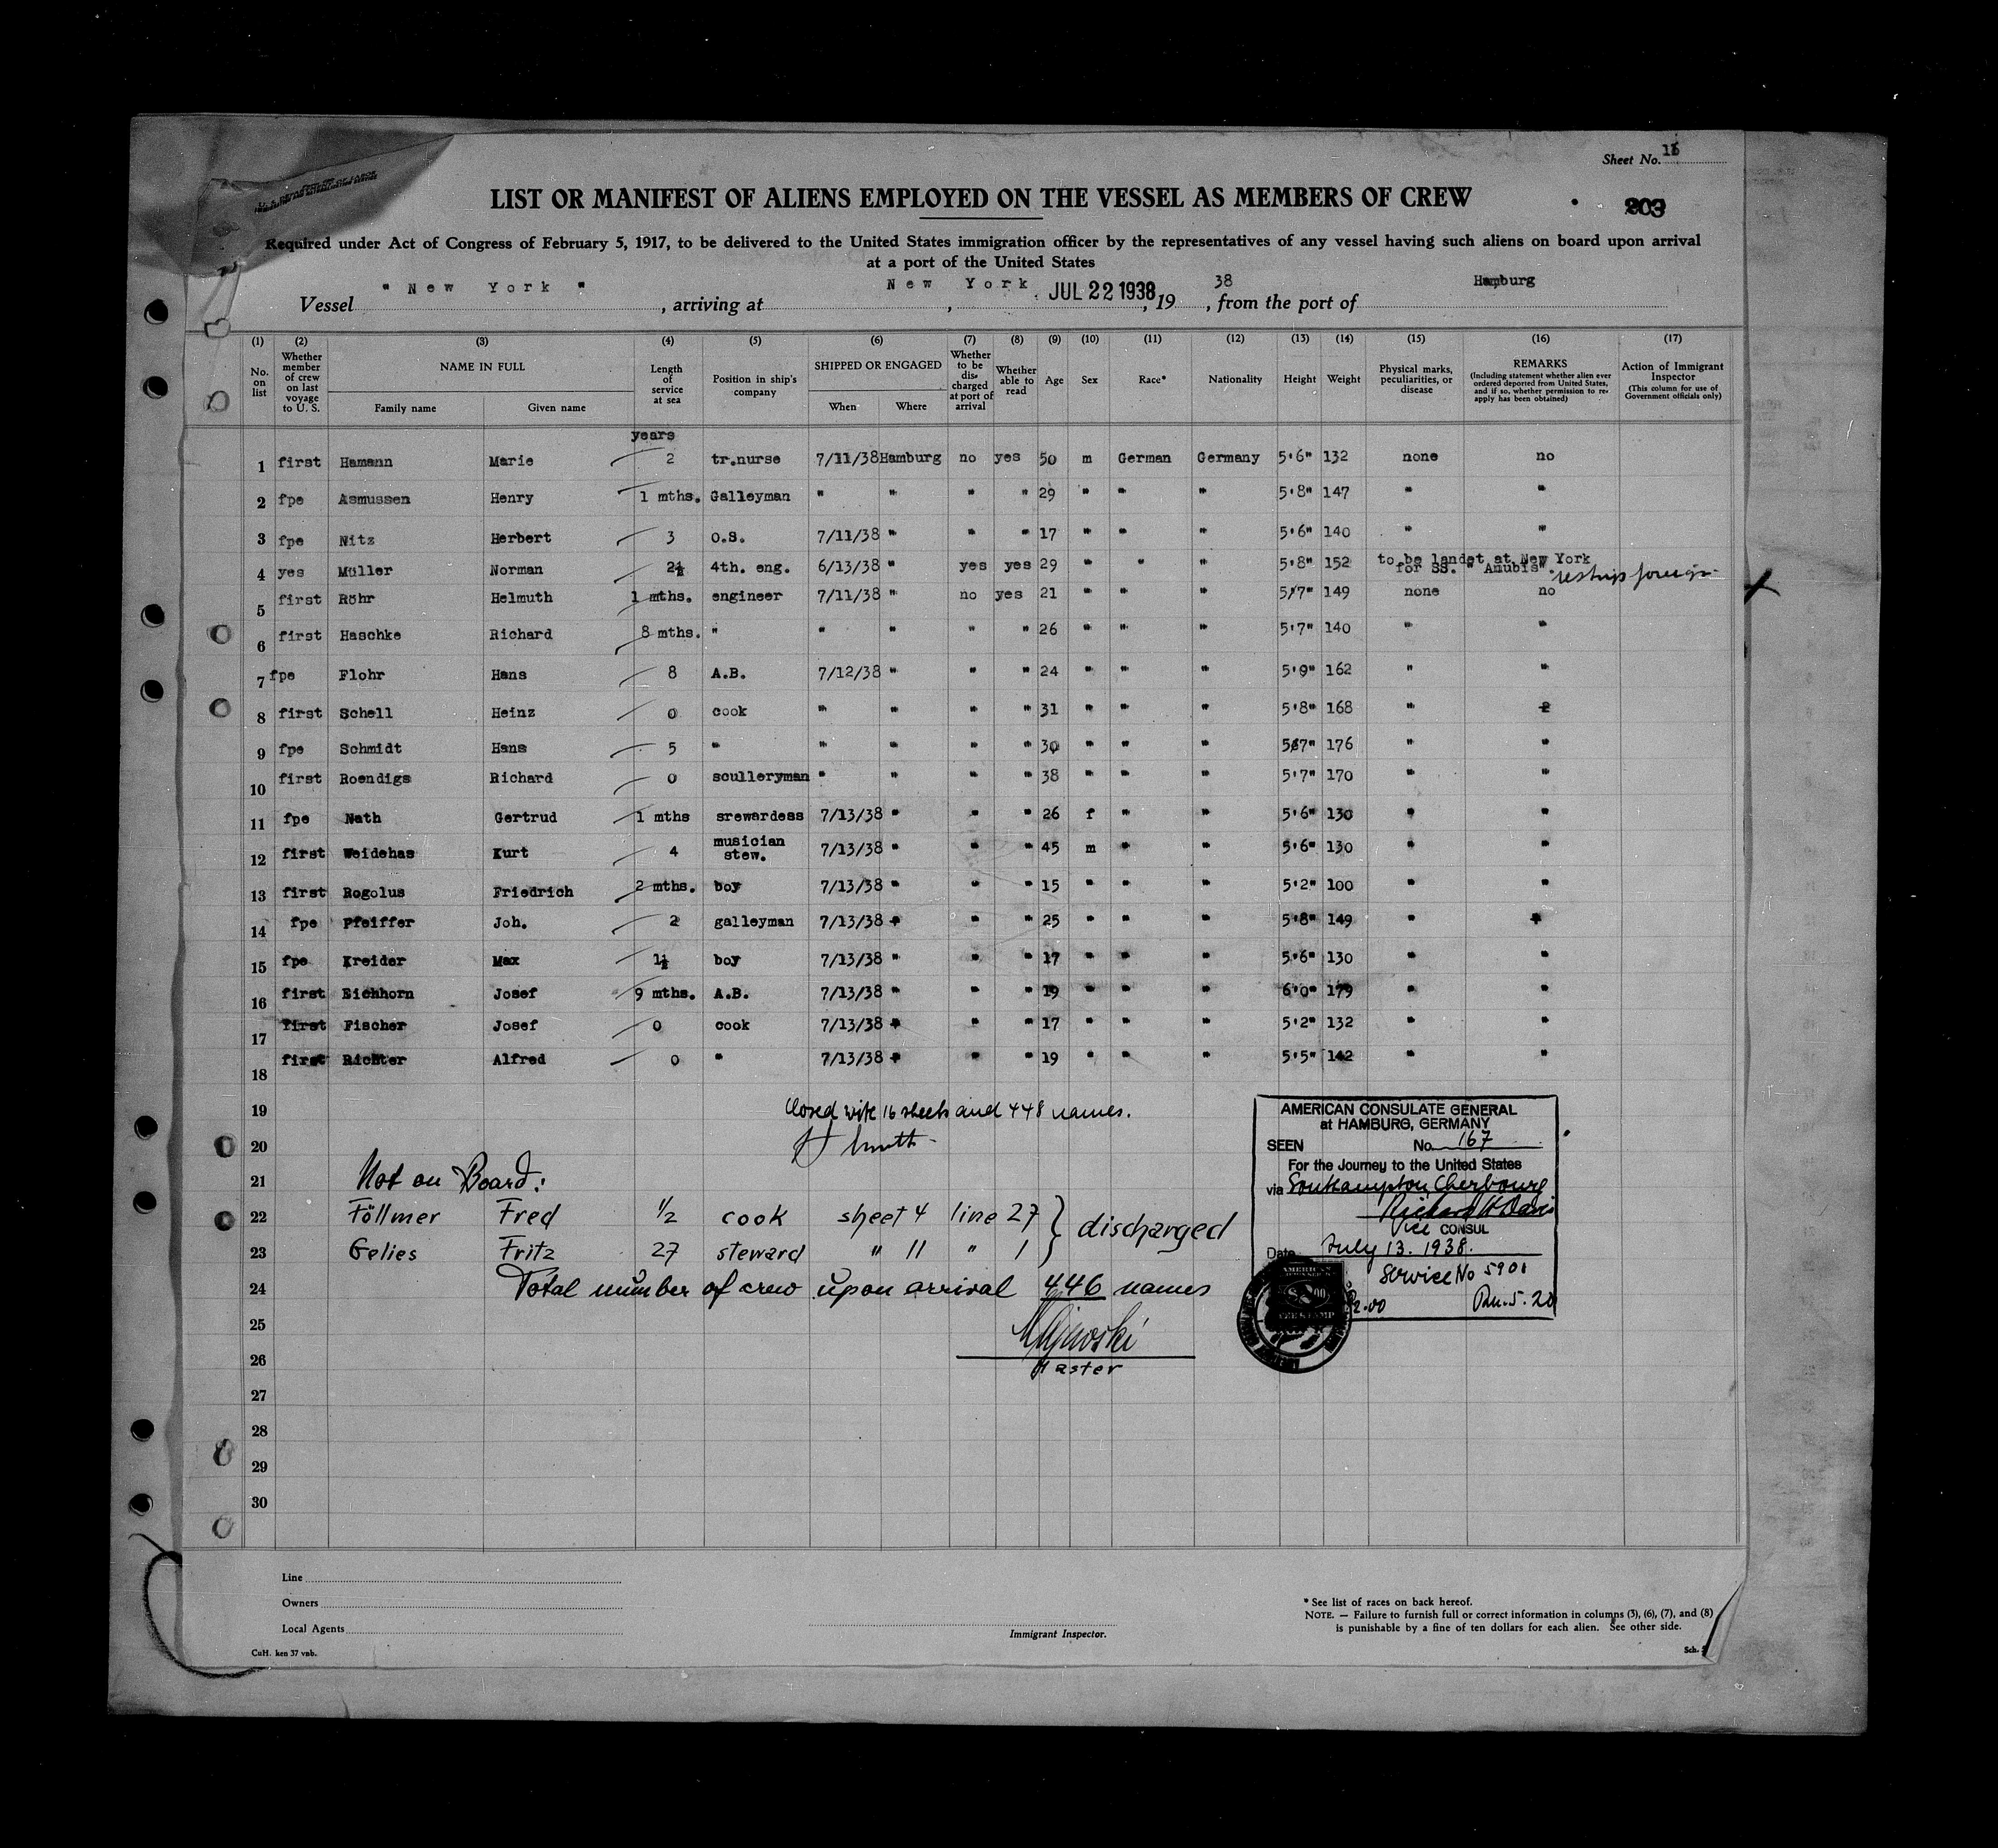 Sheet No. 16
LIST OR MANIFEST OF ALIENS EMPLOYED ON THE VESSEL AS MEMBERS OF CREW
203
Required under Act of Congress of February 5, 1917, to be delivered to the United States immigration officer by the representatives of any vessel having such aliens on board upon arrival
at a port of the United States
Vessel " New York " , arriving at New York , JUL 22 1938 , 19 38 , from the port of Hamburg
(1) (2) (3) (4) (5) (6) (7) (8) (9) (10) (11) (12) (13) (14) (15) (16) (17)
No. on list
Whether member of crew on last voyage to U. S.
NAME IN FULL
Family name Given name
Length of service at sea
Position in ship's company
SHIPPED OR ENGAGED
When Where
Whether to be discharged at port of arrival
Whether able to read
Age
Sex
Race*
Nationality
Height
Weight
Physical marks, peculiarities, or disease
REMARKS
(Including statement whether alien ever ordered deported from United States, and if so, whether permission to reapply has been obtained)
Action of Immigrant Inspector
(This column for use of Government officials only)
years
1 first Hamann Marie 2 tr.nurse 7/11/38 Hamburg no yes 50 m German Germany 5'6" 132 none no
2 fpe Asmussen Henry 1 mths. Galleyman " " " " 29 " " " 5'8" 147 " "
3 fpe Nitz Herbert 3 O.S. 7/11/38 " " " 17 " " " 5'6" 140 " "
4 yes Müller Norman 2½ 4th. eng. 6/13/38 " yes yes 29 " " " 5'8" 152 to be landet at New York
for SS. " Anubis". reship foreign
5 first Röhr Helmuth 1 mths. engineer 7/11/38 " no yes 21 " " " 5'7" 149 none no
6 first Haschke Richard 8 mths. " " " " " 26 " " " 5'7" 140 " "
7 fpe Flohr Hans 8 A.B. 7/12/38 " " " 24 " " " 5'9" 162 " "
8 first Schell Heinz 0 cook " " " " 31 " " " 5'8" 168 " "
9 fpe Schmidt Hans 5 " " " " " 30 " " " 5'7" 176 " "
10 first Roendigs Richard 0 sculleryman " " " " 38 " " " 5'7" 170 " "
11 fpe Nath Gertrud 1 mths srewardess 7/13/38 " " " 26 f " " 5'6" 130 " "
12 first Weidehas Kurt 4 musician stew. 7/13/38 " " " 45 m " " 5'6" 130 " "
13 first Rogolus Friedrich 2 mths. boy 7/13/38 " " " 15 " " " 5'2" 100 " "
14 fpe Pfeiffer Joh. 2 galleyman 7/13/38 " " " 25 " " " 5'8" 149 " "
15 fpe Kreider Max 1½ boy 7/13/38 " " " 17 " " " 5'6" 130 " "
16 first Eichhorn Josef 9 mths. A.B. 7/13/38 " " " 19 " " " 6'0" 179 " "
17 first Fischer Josef 0 cook 7/13/38 " " " 17 " " " 5'2" 132 " "
18 first Richter Alfred 0 " 7/13/38 " " " 19 " " " 5'5" 142 " "
19 Closed with 16 sheets and 448 names.
20
21 Not on Board:
22 Föllmer Fred ½ cook sheet 4 line 27
23 Gelies Fritz 27 steward " 11 " 1 } discharged
24 Total number of crew upon arrival 446 names
25
26 Master
27
28
29
30
AMERICAN CONSULATE GENERAL
at HAMBURG, GERMANY
SEEN No. 167
For the Journey to the United States
via Southampton Cherbourg
Richard H Davis
Vice CONSUL
Date July 13. 1938.
Service No 5901
$2.00 Rm. 5.20
Line
Owners
Local Agents
CuH. ken 37 vnb.
Immigrant Inspector.
* See list of races on back hereof.
NOTE. — Failure to furnish full or correct information in columns (3), (6), (7), and (8)
is punishable by a fine of ten dollars for each alien. See other side.
Sch. 5